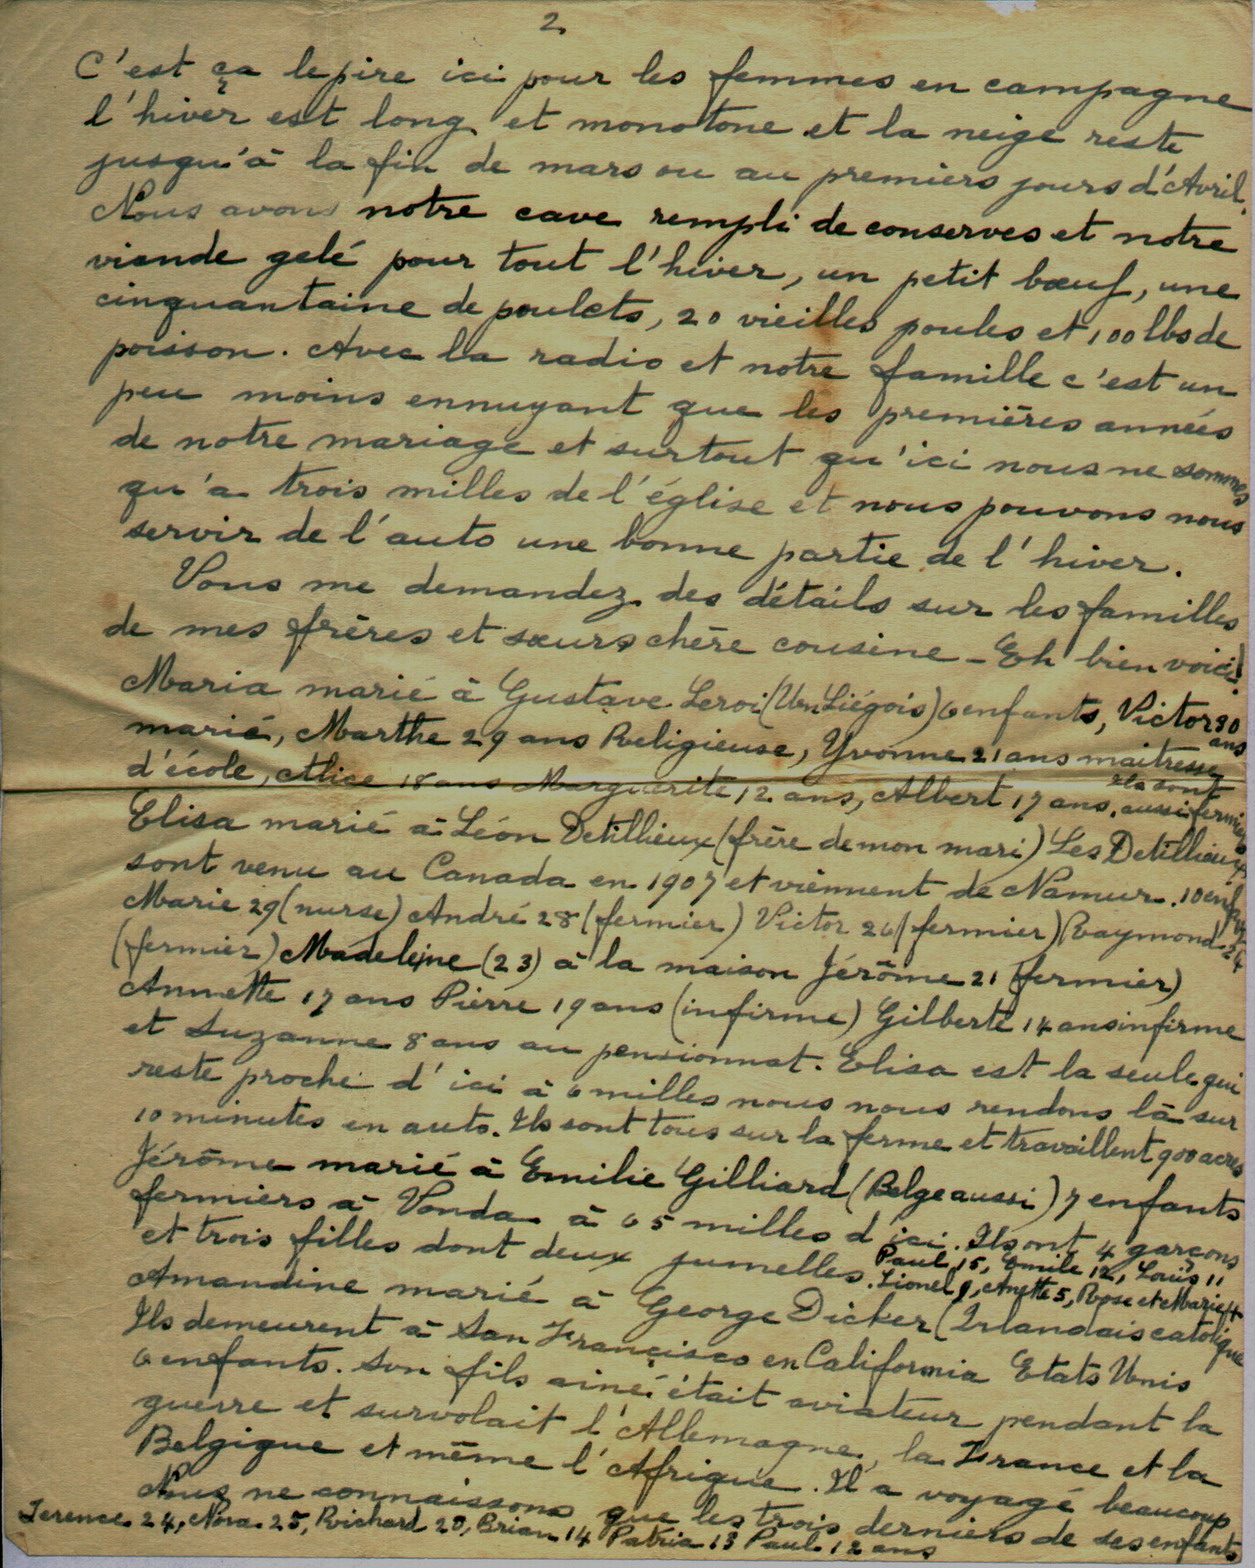 2.
C'est ça le pire ici pour les femmes en campagne
l'hiver est long et monotone et la neige reste
jusqu'à la fin de mars ou au premiers jours d'Avril.
Nous avons notre cave rempli de conserves et notre
viande gelé pour tout l'hiver, un petit bœuf, une
cinquantaine de poulets, 20 vieilles poules et 100 lbs de
poisson. Avec la radio et notre famille c'est un
peu moins ennuyant que les premières années
de notre mariage et surtout qu'ici nous ne sommes
qu'a trois milles de l'église et nous pouvons nous
servir de l'auto une bonne partie de l'hiver.
Vous me demandez des détails sur les familles
de mes frères et sœurs chère cousine - Eh bien voici!
Maria marié à Gustave Leroi (Un Liégois) 6 enfants, Victor 30 ans
marié, Marthe 29 ans Religieuse, Yvonne 21 ans maitresse
d'école, Alice 18 ans Marguerite 12 ans, Albert 17 ans, ils sont aussi fermiers
Elisa marié à Léon Detillieux (frère de mon mari) Les Detillieux
sont venu au Canada en 1907 et viennent de Namur. 10 enfants
Marie 29 (nurse) André 28 (fermier) Victor 26 (fermier) Raymond 24
(fermier) Madeleine (23) à la maison Jérôme 21 (fermier)
Annette 17 ans Pierre 19 ans (infirme) Gilberte 14 ans infirme
et Suzanne 8 ans au pensionnat. Elisa est la seule qui
reste proche d'ici à 6 milles nous nous rendons là sur
10 minutes en auto. Ils sont tous sur la ferme et travaillent 900 acres
Jérôme marié à Emilie Gilliard (Belge aussi) 7 enfants
fermiers à Vonda à 65 milles d'ici. Ils ont 4 garçons
et trois filles dont deux jumelles. Paul 15, Emile 12, Louis 11
Lionel 9, Anette 5, Rose et Marie 4
Amandine marié à George Dicker (Irlandais catolique
Ils demeurent à San Francisco en California Etats Unis
6 enfants. Son fils ainé était aviateur pendant la
guerre et survolait l'Allemagne, la France et la
Belgique et même l'Afrique. Il a voyagé beaucoup
Nous ne connaissons que les trois derniers de ses enfants
Terence 24, Nora 25, Richard 20, Brian 14 Patria 13 Paul 12 ans